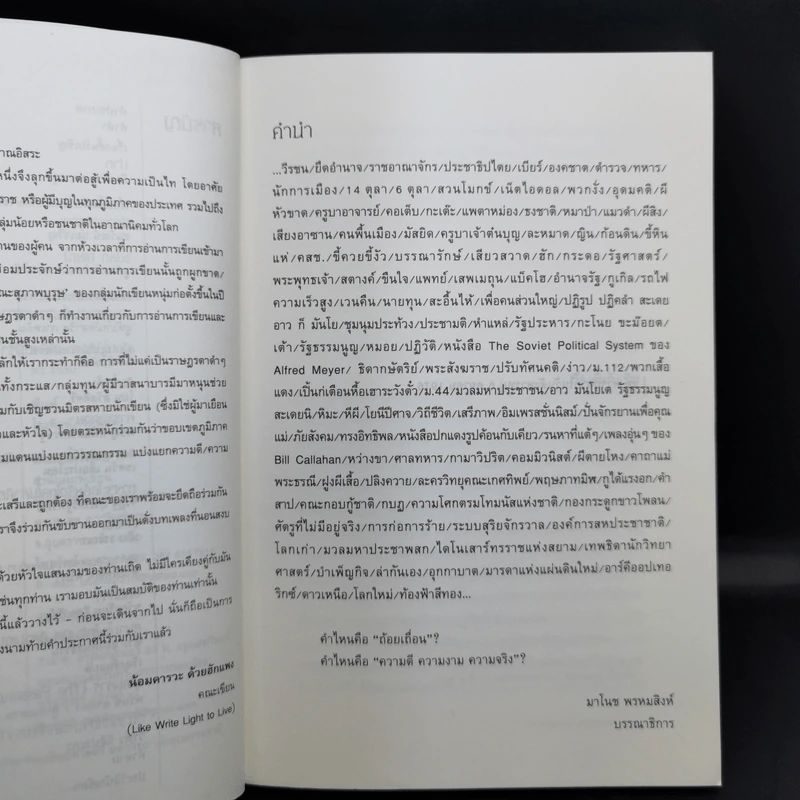 าณอิสระ
หนึ่งจึงลุกขึ้นมาต่อสู้เพื่อความเป็นไท โดยอาศัย
ราช หรือผู้มีบุญในทุกภูมิภาคของประเทศ รวมไปถึง
ลุ่มน้อยหรือชนชาติในอาณานิคมทั่วโลก
านของผู้คน จากห้วงเวลาที่การอ่านการเขียนเข้ามา
ร้อมประจักษ์ว่าการอ่านการเขียนนั้นถูกผูกขาด/
ณะสุภาพบุรุษ' ของกลุ่มนักเขียนหนุ่มก่อตั้งขึ้นในปี
ษฎรตาดำๆ ก็ทำงานเกี่ยวกับการอ่านการเขียนและ
นชั้นสูงเหล่านั้น
ลักให้เรากระทำก็คือ การที่ไม่แค่เป็นราษฎรตาดำๆ
ทั้งกระแส/กลุ่มทุน/ผู้มีวาสนาบารมีมาหนุนช่วย
มกับเชิญชวนมิตรสหายนักเขียน (ซึ่งมิใช่ผู้มาเยือน
าและหัวใจ) โดยตระหนักร่วมกันว่าขอบเขตภูมิภาค
มแดนแบ่งแยกวรรณกรรม แบ่งแยกความดี/ความ
ะเสรีและถูกต้อง ที่คณะของเราพร้อมจะยึดถือร่วมกัน
ราจึงร่วมกันขับขานออกมาเป็นดั่งบทเพลงที่นอนสงบ
ด้วยหัวใจแสนงามของท่านเถิด ไม่มีใครเดียงคู่กับมัน
ช่นทุกท่าน เรามอบมันเป็นสมบัติของท่านเท่านั้น
นี้แล้ววางไว้ - ก่อนจะเดินจากไป นั่นก็ถือเป็นการ
งนามท้ายคำประกาศนี้ร่วมกับเราแล้ว
น้อมคารวะ ด้วยฮักแพง
คณะเขียน
(Like Write Light to Live)
คำนำ
...วีรชน/ยึดอำนาจ/ราชอาณาจักร/ประชาธิปไตย/เบียร์/องคชาต/ตำรวจ/ทหาร/
นักการเมือง/14 ตุลา/6 ตุลา/สวนโมกข์/เน็ตไอดอล/พวกงั่ง/อุดมคติ/ผี
หัวขาด/ครูบาอาจารย์/คอเต็บ/กะเต๊ะ/แพตาหม่อง/ธงชาติ/หมาป่า/แมวดำ/ผีสิง/
เสียงอาซาน/คนพื้นเมือง/มัสยิด/ครูบาเจ้าต๋นบุญ/ละหมาด/ญิน/ก้อนดิน/ขี้หีน
แห่/คสช./ขี้ควยขี้งัว/บรรณารักษ์/เสียวสวาด/ฮัก/กระดอ/รัฐศาสตร์/
พระพุทธเจ้า/สตางค์/ขืนใจ/แพทย์/เสพเมถุน/แบ็คโฮ/อำนาจรัฐ/กูเกิล/รถไฟ
ความเร็วสูง/เวนคืน/นายทุน/สะอื้นไห้/เพื่อคนส่วนใหญ่/ปฏิรูป ปฏิคลำ สะเดย
อาว ก็ มันโย/ชุมนุมประท้วง/ประชามติ/หำแหล่/รัฐประหาร/กะโนย ขะม๊อยต/
เต้า/รัฐธรรมนูญ/หมอย/ปฏิวัติ/หนังสือ The Soviet Political System ของ
Alfred Meyer/ ธิดากษัตริย์/พระสังฆราช/ปรับทัศนคติ/ง่าว/ม.112/พวกเสื้อ
แดง/เป็กก่เตือนหื้อเฮาระวังตั๋ว/ม.44/มวลมหาประชาชน/อาว มันโยเด รัฐธรรมนูญ
สะเดยนิ/หิมะ/หีผี/โยนีปีศาจ/วิถีชีวิต/เสรีภาพ/อิมเพรสชั่นนิสม์/ปั่นจักรยานเพื่อคุณ
แม่/ภัยสังคม/ทรงอิทธิพล/หนังสือปกแดงรูปค้อนกับเคียว/รนหาที่แต้ๆ/เพลงอุ่นๆ ของ
Bill Callahan/หว่างขา/ศาลทหาร/กามาวิปริต/คอมมิวนิสต์/ผีตายโหง/คาถาแม่
พระธรณี/ฝูงผีเสื้อ/ปลิงควาย/ละครวิทยุคณะเกศทิพย์/พฤษภาทมิฬ/กูได้แรงอก/คำ
สาป/คณะกอบกู้ชาติ/กบฏ/ความโศกตรมโทมนัสแห่งชาติ/กองกระดูกขาวโพลน/
ศัตรูที่ไม่มีอยู่จริง/การก่อการร้าย/ระบบสุริยจักรวาล/องค์การสหประชาชาติ/
โลกเก่า/มวลมหาประชาพสก/ไดโนเสาร์ทรราชแห่งสยาม/เทพธิดานักวิทยา
ศาสตร์/บำเพ็ญกิจ/ล่ากันเอง/อุกกาบาต/มารดาแห่งแผ่นดินใหม่/อาร์คีออปเทอ
ริกซ์/ดาวเหนือ/โลกใหม่/ท้องฟ้าสีทอง...
คำไหนคือ “ถ้อยเถื่อน”?
คำไหนคือ “ความดี ความงาม ความจริง”?
มาโนช พรหมสิงห์
บรรณาธิการ